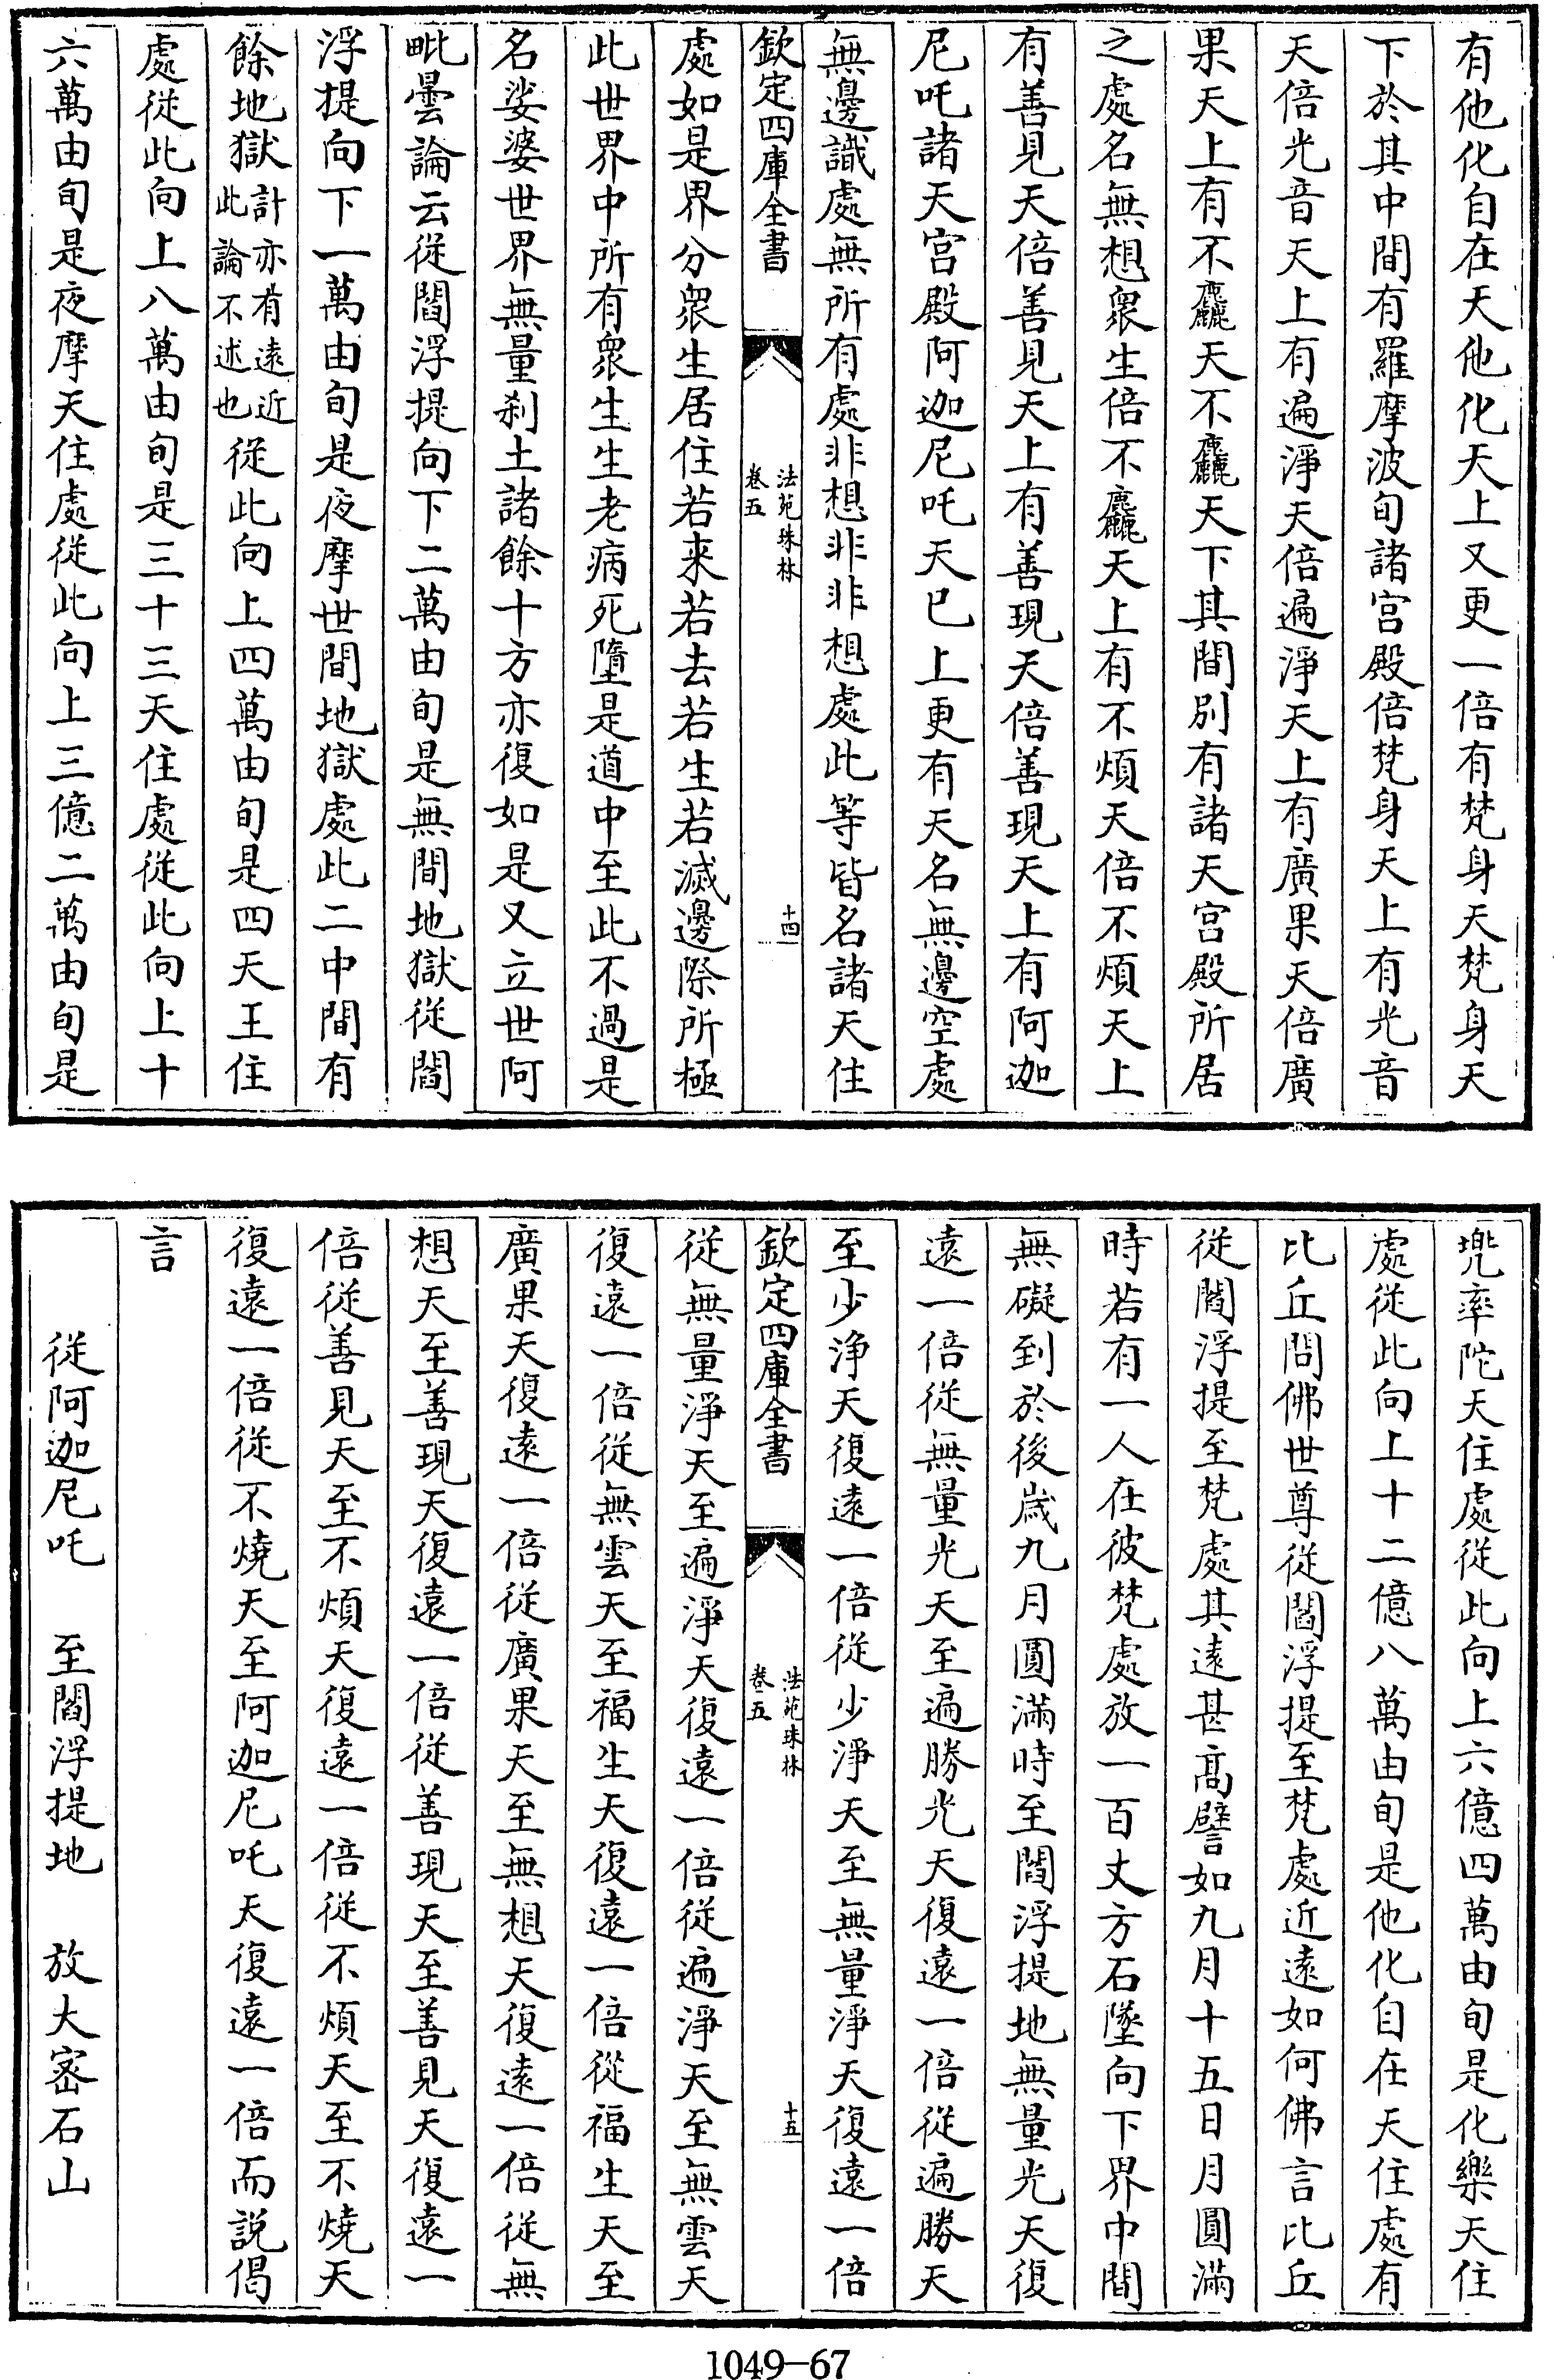 有他化自在天他化天上又更一倍有梵身天梵身天
下於其中間有羅摩波旬諸宮殿倍梵身天上有光音
天倍光音天上有遍淨天倍遍淨天上有廣果天倍廣
果天上有不麤天不麤天下其間別有諸天宮殿所居
之處名無想衆生倍不麤天上有不煩天倍不煩天上
有善見天倍善見天上有善現天倍善現天上有阿迦
尼吒諸天宮殿阿迦尼吒天已上更有天名無邊空處
無邊識處無所有處非想非非想處此等皆名諸天住
欽定四庫全書
法苑珠林
卷五
十四
處如是界分衆生居住若來若去若生若滅邊際所極
此世界中所有衆生生老病死墮是道中至此不過是
名娑婆世界無量刹土諸餘十方亦復如是又立世阿
毗曇論云從閻浮提向下二萬由旬是無間地獄從閻
浮提向下一萬由旬是夜摩世間地獄處此二中間有
餘地獄計亦有遠近此論不述也從此向上四萬由旬是四天王住
處從此向上八萬由旬是三十三天住處從此向上十
六萬由旬是夜摩天住處從此向上三億二萬由旬是
兜率陀天住處從此向上六億四萬由旬是化樂天住
處從此向上十二億八萬由旬是他化自在天住處有
比丘問佛世尊從閻浮提至梵處近遠如何佛言比丘
從閻浮提至梵處其遠甚髙譬如九月十五日月圓滿
時若有一人在彼梵處放一百丈方石墜向下界中間
無礙到於後歲九月圓滿時至閻浮提地無量光天復
遠一倍從無量光天至遍勝光天復遠一倍從遍勝天
至少淨天復遠一倍從少淨天至無量淨天復遠一倍
欽定四庫全書
法苑珠林
卷五
十五
從無量淨天至遍淨天復遠一倍從遍淨天至無雲天
復遠一倍從無雲天至福生天復遠一倍從福生天至
廣果天復遠一倍從廣果天至無想天復遠一倍從無
想天至善現天復遠一倍從善現天至善見天復遠一
倍從善見天至不煩天復遠一倍從不煩天至不燒天
復遠一倍從不燒天至阿迦尼吒天復遠一倍而說偈
言
從阿迦尼吒　至閻浮提地　放大密石山
1049-67